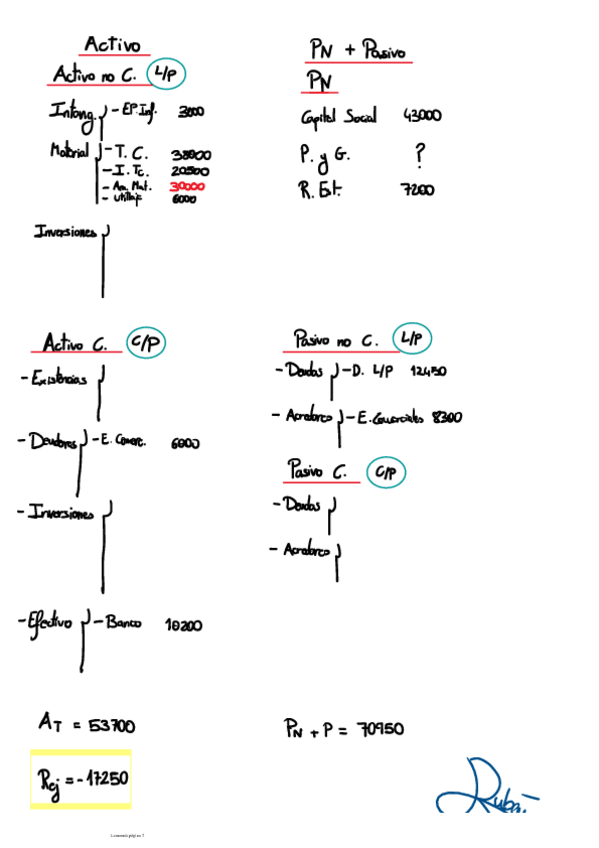 Activo
Activo no C. L/P
Intang. - EP.Inf. 3000
Material - T. C. 38000
- I. Tc. 20500
- Am. Mat. 30000
- Utillaje 6000
Inversiones
Activo C. C/P
- Existencias
- Deudores - E. Comerc. 6000
- Inversiones
- Efectivo - Banco 10200
AT = 53700
Rej = -17250
PN + Pasivo
PN
Capital Social 43000
P. y G. ?
R. Est. 7200
Pasivo no C. L/P
- Deudas - D. L/P 12450
- Acreedores - E. Comerciales 8300
Pasivo C. C/P
- Deudas
- Acreedores
PN + P = 70950